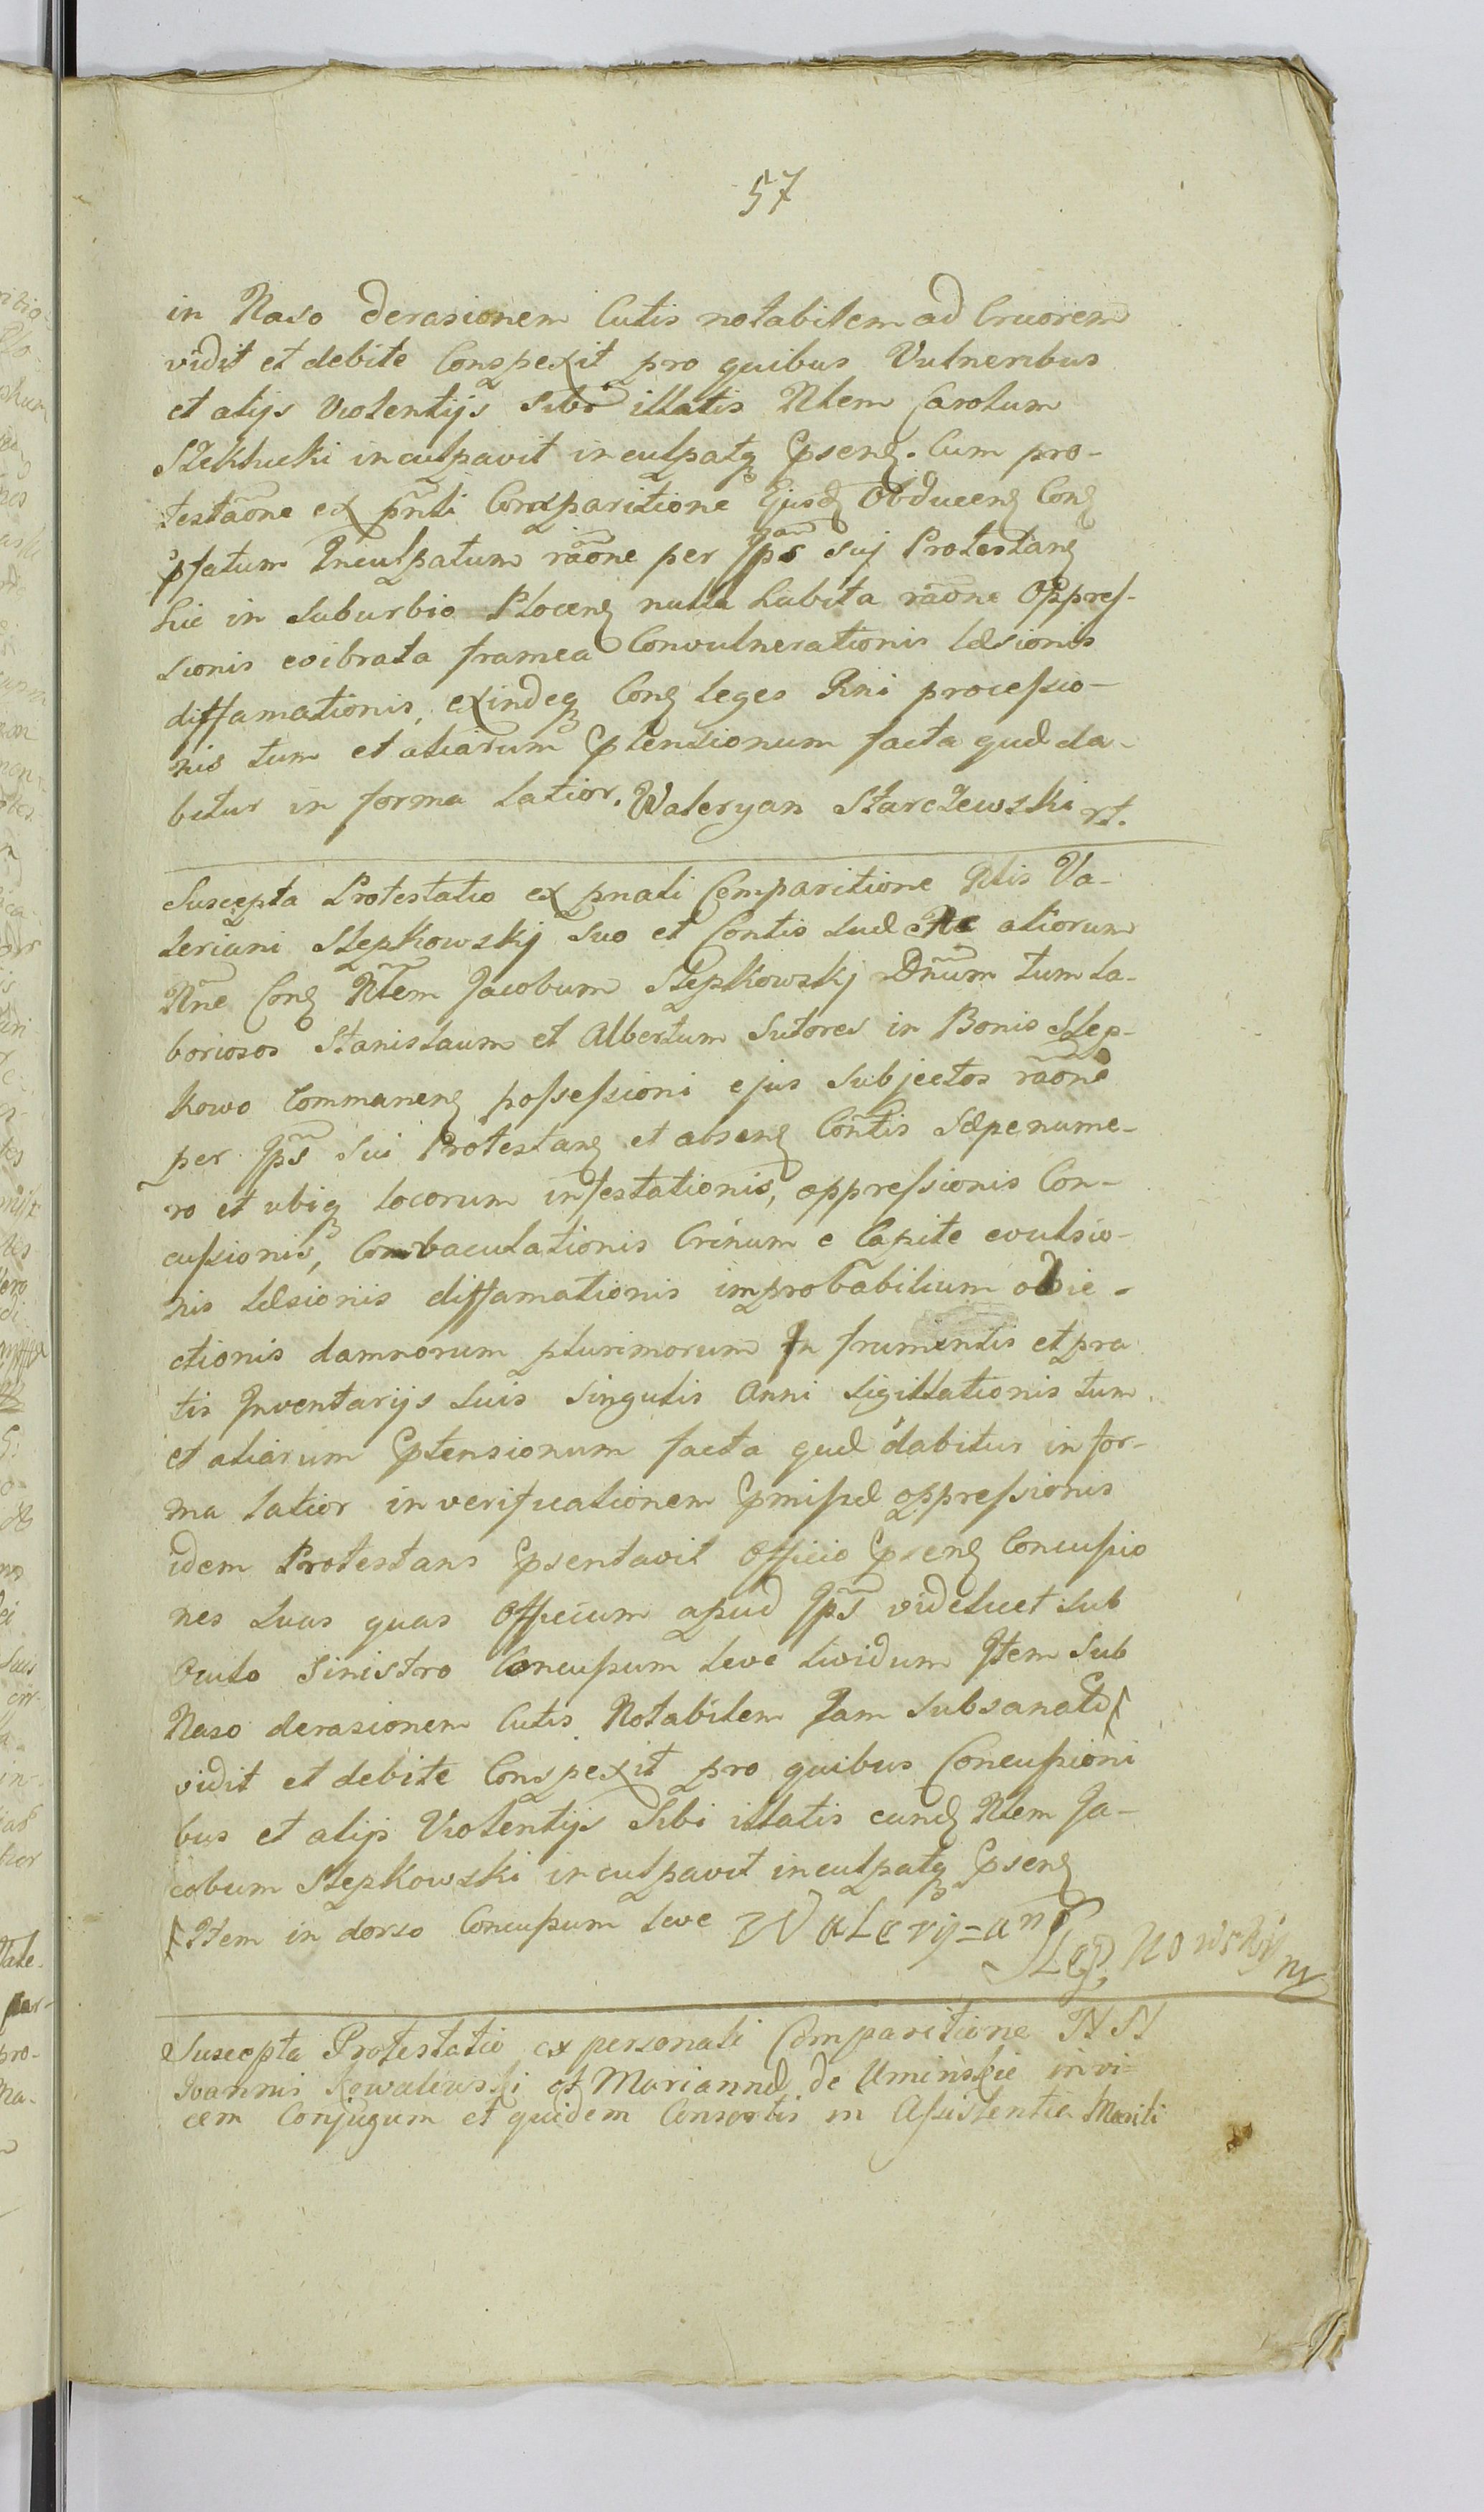 57
in Naso derasionem Cutis notabilem ad Cruorem
vidit et debite Conspexit pro quibus Vulneribus
et alijs Violentijs Sibi illatis Nlem Carolum
Szekłucki inculpavit inculpatq psen. Cum pro-
testaõne ex pñli Comparitione Ejusd Obducen Con
pfatum Inculpatum raõne per Ips suj Protestan
hic in Suburbio Plocen nulla habita raõne Oppres-
sionis evibrata framea Convulnerationis læsionis
diffamationis, exindeq Con leges Rni processio-
nis tum et aliarum ptensionum facta quæ da-
bitur in forma latior. Waleryan Starczewski
Suscepta Protestatio ex pnali Comparitione Nlis Va-
leriani Słepkowskj suo et Contis suæ Ac aliorum
Nne Con Nlem Jacobum Słepkowskj Dnum tum la-
boriosos Stanislaum et Albertum Sutores in Bonis Słep-
kowo Commanen possessioni ejus Subjectos raõne
per Ips sui Protestan et absen Contis Sæpenume-
ro et ubiq locorum infestationis, oppressionis Con-
cussionis, Combaculationis Crinum e Capite evulsio-
nis læsionis diffamationis improbabilium obie-
ctionis damnorum plurimorum In frumentis et pra
tis Inventarijs suis singulis Anni Sigillationis tum
et aliarum ptensionum facta quæ dabitur in for-
ma latior in verificationem pmissæ oppressionis
idem Protestans psentavit Officio psen Concussio
nes suas quas Officium apud Ips videlicet sub
Oculo Sinistro Concussum leve lividum Item Sub
Naso derasionem Cutis Notabilem Jam Subsanatā
vidit et debite Conspexit pro quibus Concussioni
bus et alijs Violentijs Sibi illatis eund Nlem Ja-
cobum Słepkowski inculpavit inculpatq psen
Item in dorso Concussum leve Walery=an Słepkowsky
Suscepta Protestatio ex personali Comparitione NN
Ioannis Kowalewski et Mariannæ de Uminskie invi-
cem Conjugum et quidem Consortis in Assistentia Mariti